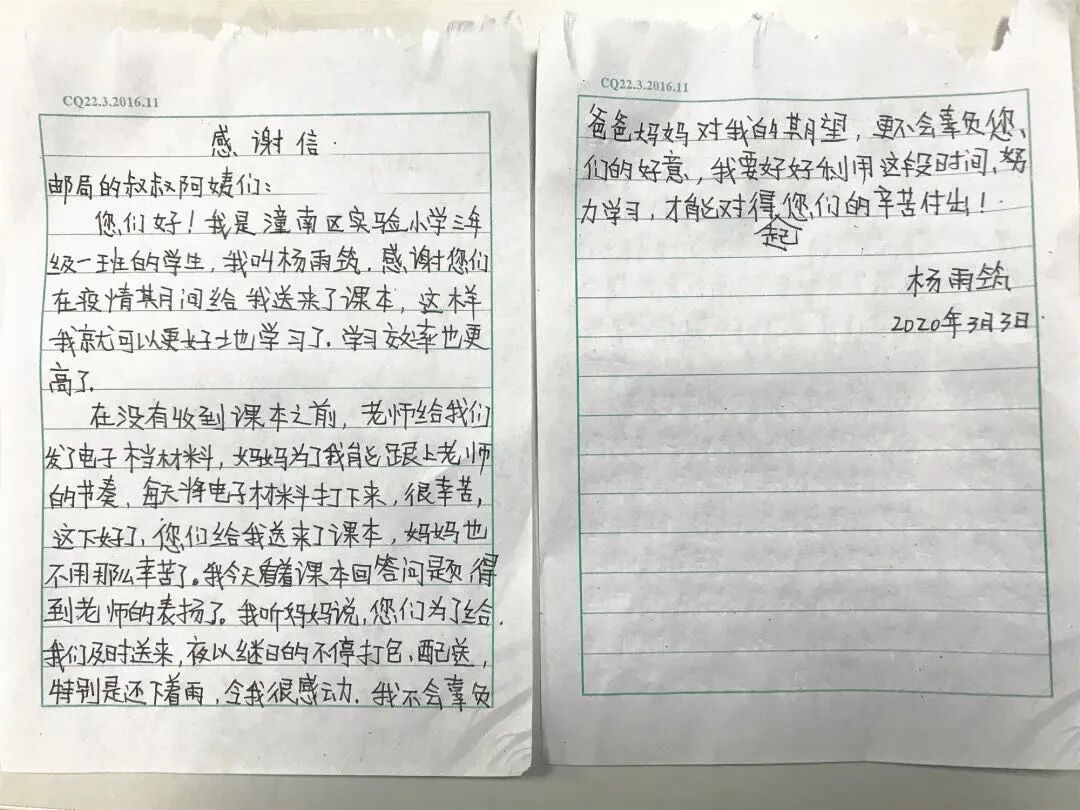 CQ22.3.2016.11
感谢信
邮局的叔叔阿姨们:
您们好!我是潼南区实验小学三年
级一班的学生,我叫杨雨筑.感谢您们
在疫情期间给我送来了课本,这样
我就可以更好地学习了.学习效率也更
高了.
在没有收到课本之前,老师给我们
发了电子档材料,妈妈为了我能跟上老师
的节奏,每天将电子材料打下来,很辛苦,
这下好了,您们给我送来了课本,妈妈也
不用那么辛苦了。我今天看着课本回答问题得
到老师的表扬了。我听妈妈说,您们为了给
我们及时送来,夜以继日的不停打包、配送,
特别是还下着雨,令我很感动.我不会辜负
CQ22.3.2016.11
爸爸妈妈对我的期望,更不会辜负您
们的好意,我要好好利用这段时间,努
力学习,才能对得起您们的辛苦付出!
杨雨筑
2020年3月3日